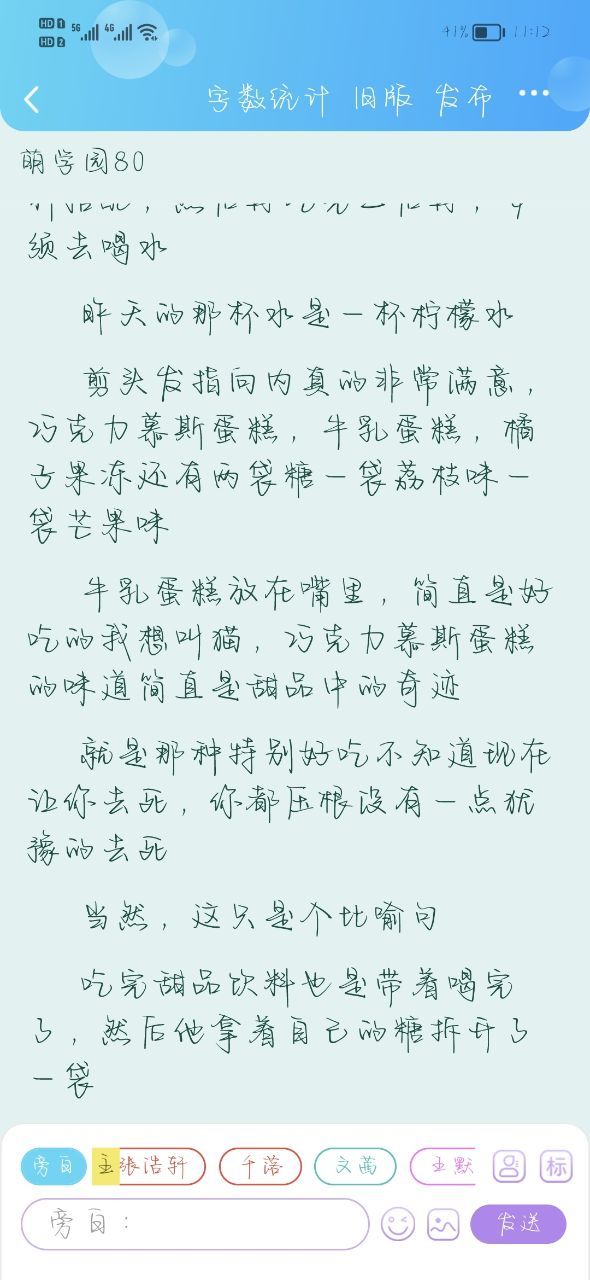 HD 1 5G 4G 41% 11:12
HD 2
字数统计 旧版 发布 ...
萌学园80
须去喝水
昨天的那杯水是一杯柠檬水
剪头发指向内真的非常满意，
巧克力慕斯蛋糕，牛乳蛋糕，橘
子果冻还有两袋糖一袋荔枝味一
袋芒果味
牛乳蛋糕放在嘴里，简直是好
吃的我想叫猫，巧克力慕斯蛋糕
的味道简直是甜品中的奇迹
就是那种特别好吃不知道现在
让你去死，你都压根没有一点犹
豫的去死
当然，这只是个比喻句
吃完甜品饮料也是带着喝完
了，然后他拿着自己的糖拆开了
一袋
旁白 主 张浩轩 千落 文茜 王默 标
旁白： 发送